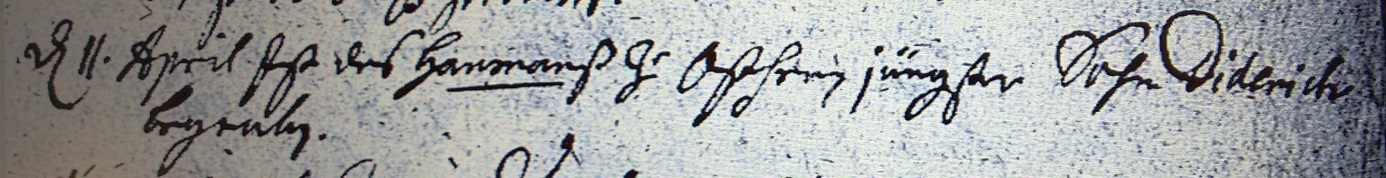 D 11. April Ist des Hanmanß zu Aschen jüngster Sohn Diderich
begraben.